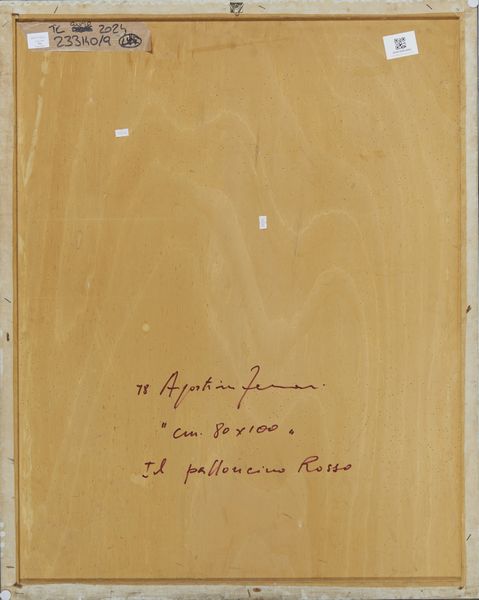 TC 2024
233140/9
78 Agostino Ferrari.
" cm. 80x100 "
Il palloncino Rosso